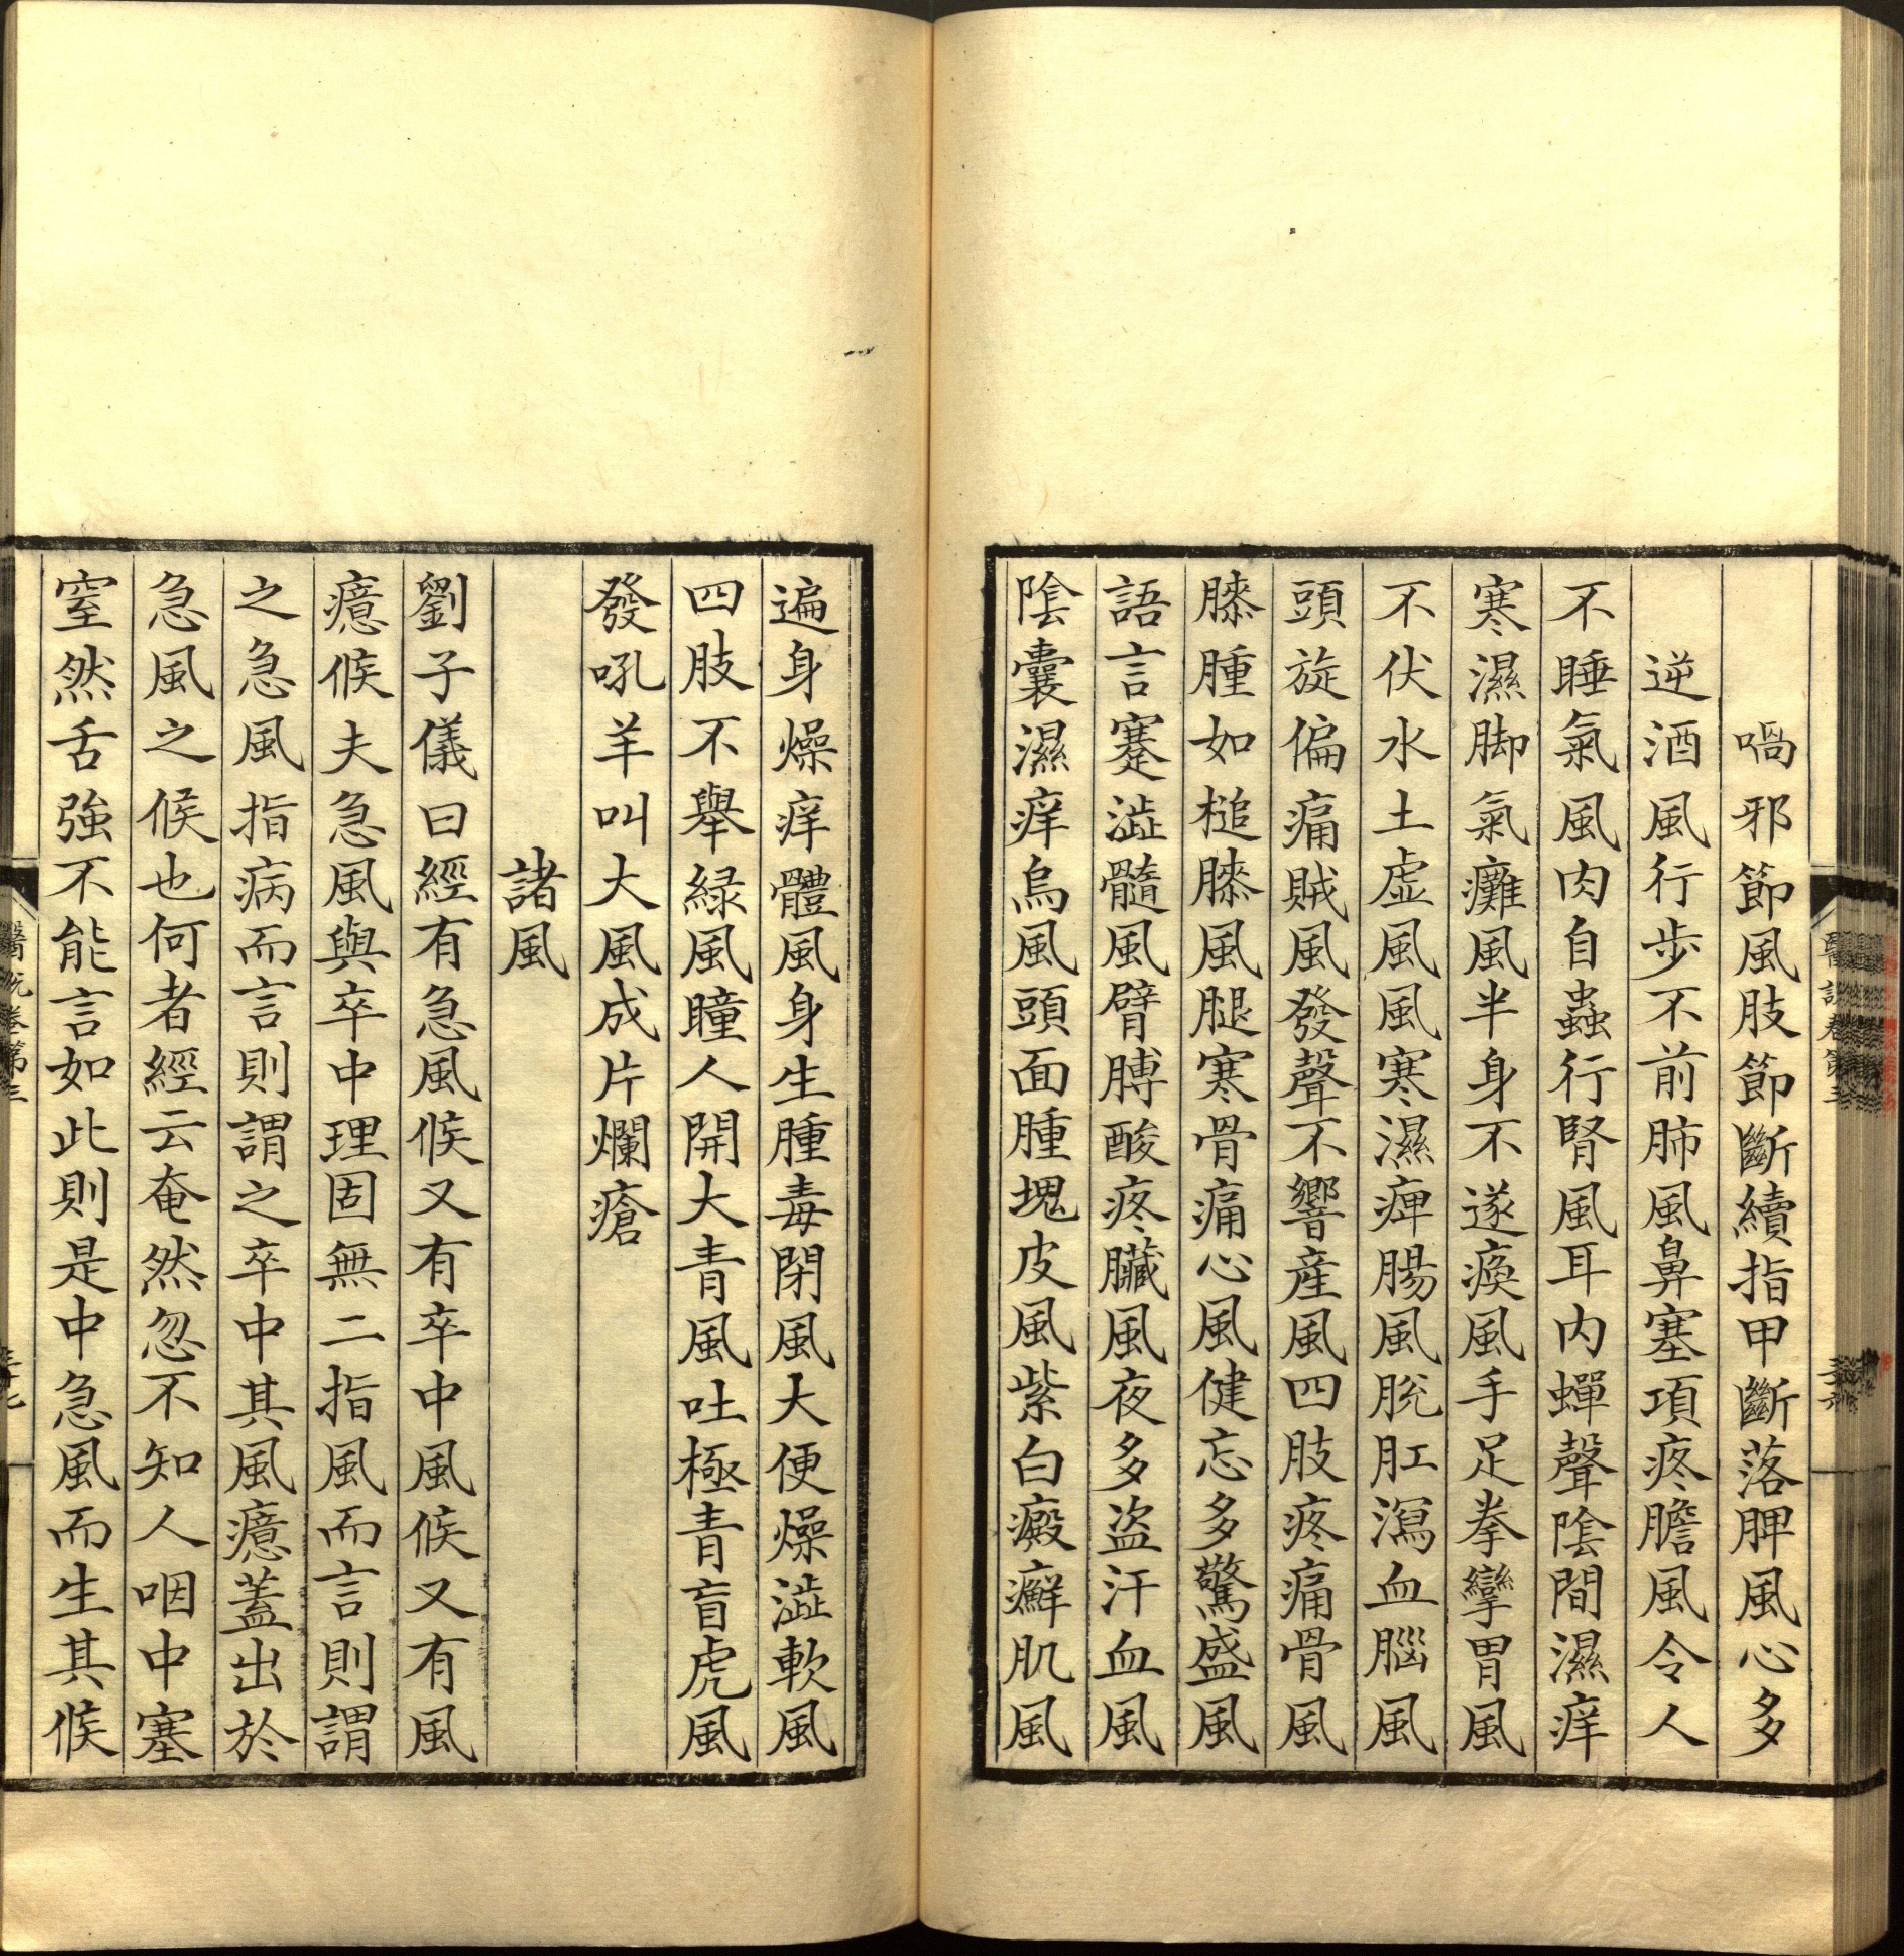 喎邪節風肢節斷續指甲斷落脾風心多
逆酒風行步不前肺風鼻塞項疼膽風令人
不睡氣風肉自蟲行腎風耳内蟬聲陰間濕痒
寒濕脚氣癱風半身不遂瘓風手足拳攣胃風
不伏水土虚風風寒濕痺腸風脫肛瀉血腦風
頭旋偏痛賊風發聲不響産風四肢疼痛骨風
膝腫如槌膝風腿寒骨痛心風健忘多驚盛風
語言蹇澁髓風臂膊酸疼臟風夜多盗汗血風
陰囊濕痒烏風頭面腫塊皮風紫白癜癬肌風
遍身燥痒體風身生腫毒閉風大便燥澁軟風
四肢不舉緑風瞳人開大青風吐極青盲虎風
發吼羊叫大風成片爛瘡
諸風
劉子儀曰經有急風候又有卒中風候又有風
癔候夫急風與卒中理固無二指風而言則謂
之急風指病而言則謂之卒中其風癔蓋出於
急風之候也何者經云奄然忽不知人咽中塞
窒然舌強不能言如此則是中急風而生其候
醫說卷第三